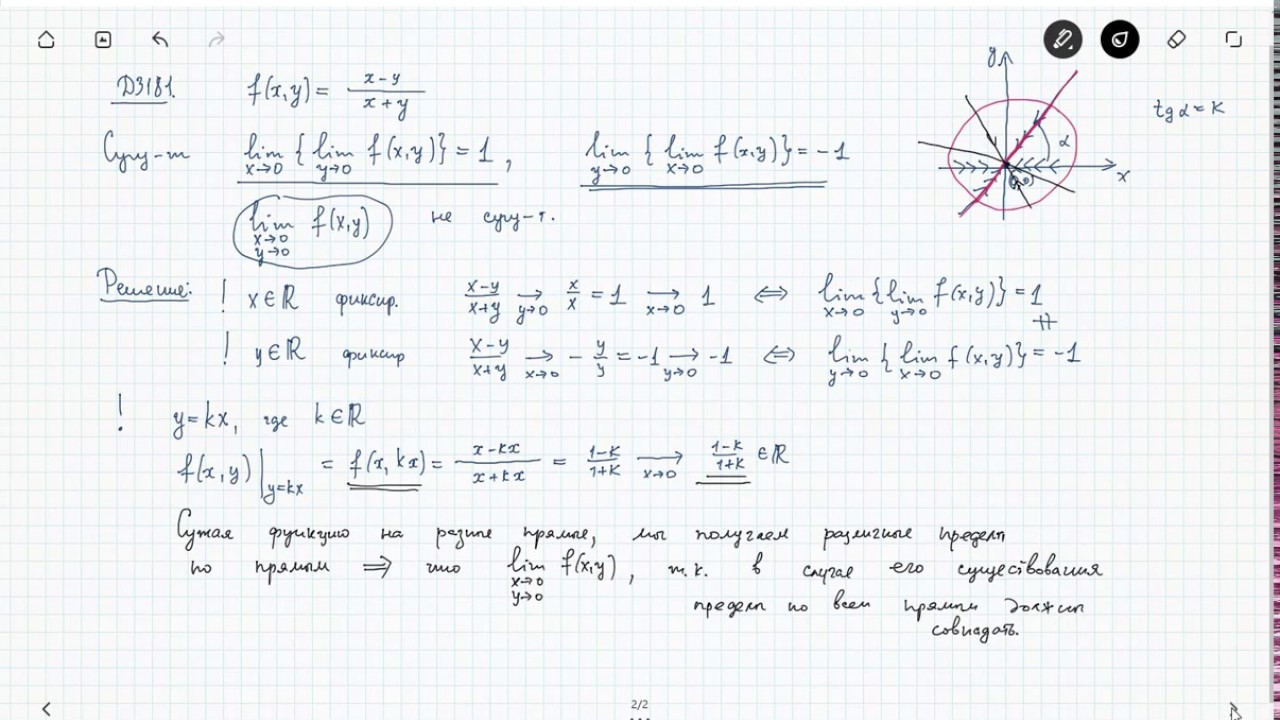 ДЗ181. f(x,y) = \frac{x-y}{x+y}
Сущ-т \lim_{x→0} { \lim_{y→0} f(x,y)} = 1 , \lim_{y→0} { \lim_{x→0} f(x,y)} = -1
\lim_{x→0 y→0} f(x,y) не сущ-т.
Решение: ! x∈ℝ фиксир. \frac{x-y}{x+y} →_{y→0} \frac{x}{x} = 1 →_{x→0} 1 ⇔ \lim_{x→0} {\lim_{y→0} f(x,y)} = 1
≠
! y∈ℝ фиксир \frac{x-y}{x+y} →_{x→0} - \frac{y}{y} = -1 →_{y→0} -1 ⇔ \lim_{y→0} { \lim_{x→0} f(x,y)} = -1
! y=kx, где k∈ℝ
f(x,y)|_{y=kx} = f(x,kx) = \frac{x-kx}{x+kx} = \frac{1-k}{1+k} →_{x→0} \frac{1-k}{1+k} ∈ℝ
Сужая функцию на разные прямые, мы получаем различные пределы
по прямым ⇒ что \lim_{x→0 y→0} f(x,y) , т.к. в случае его существования
пределы по всем прямым должны
совпадать.
y
x
α
(0,0)
tg α = k
2/2